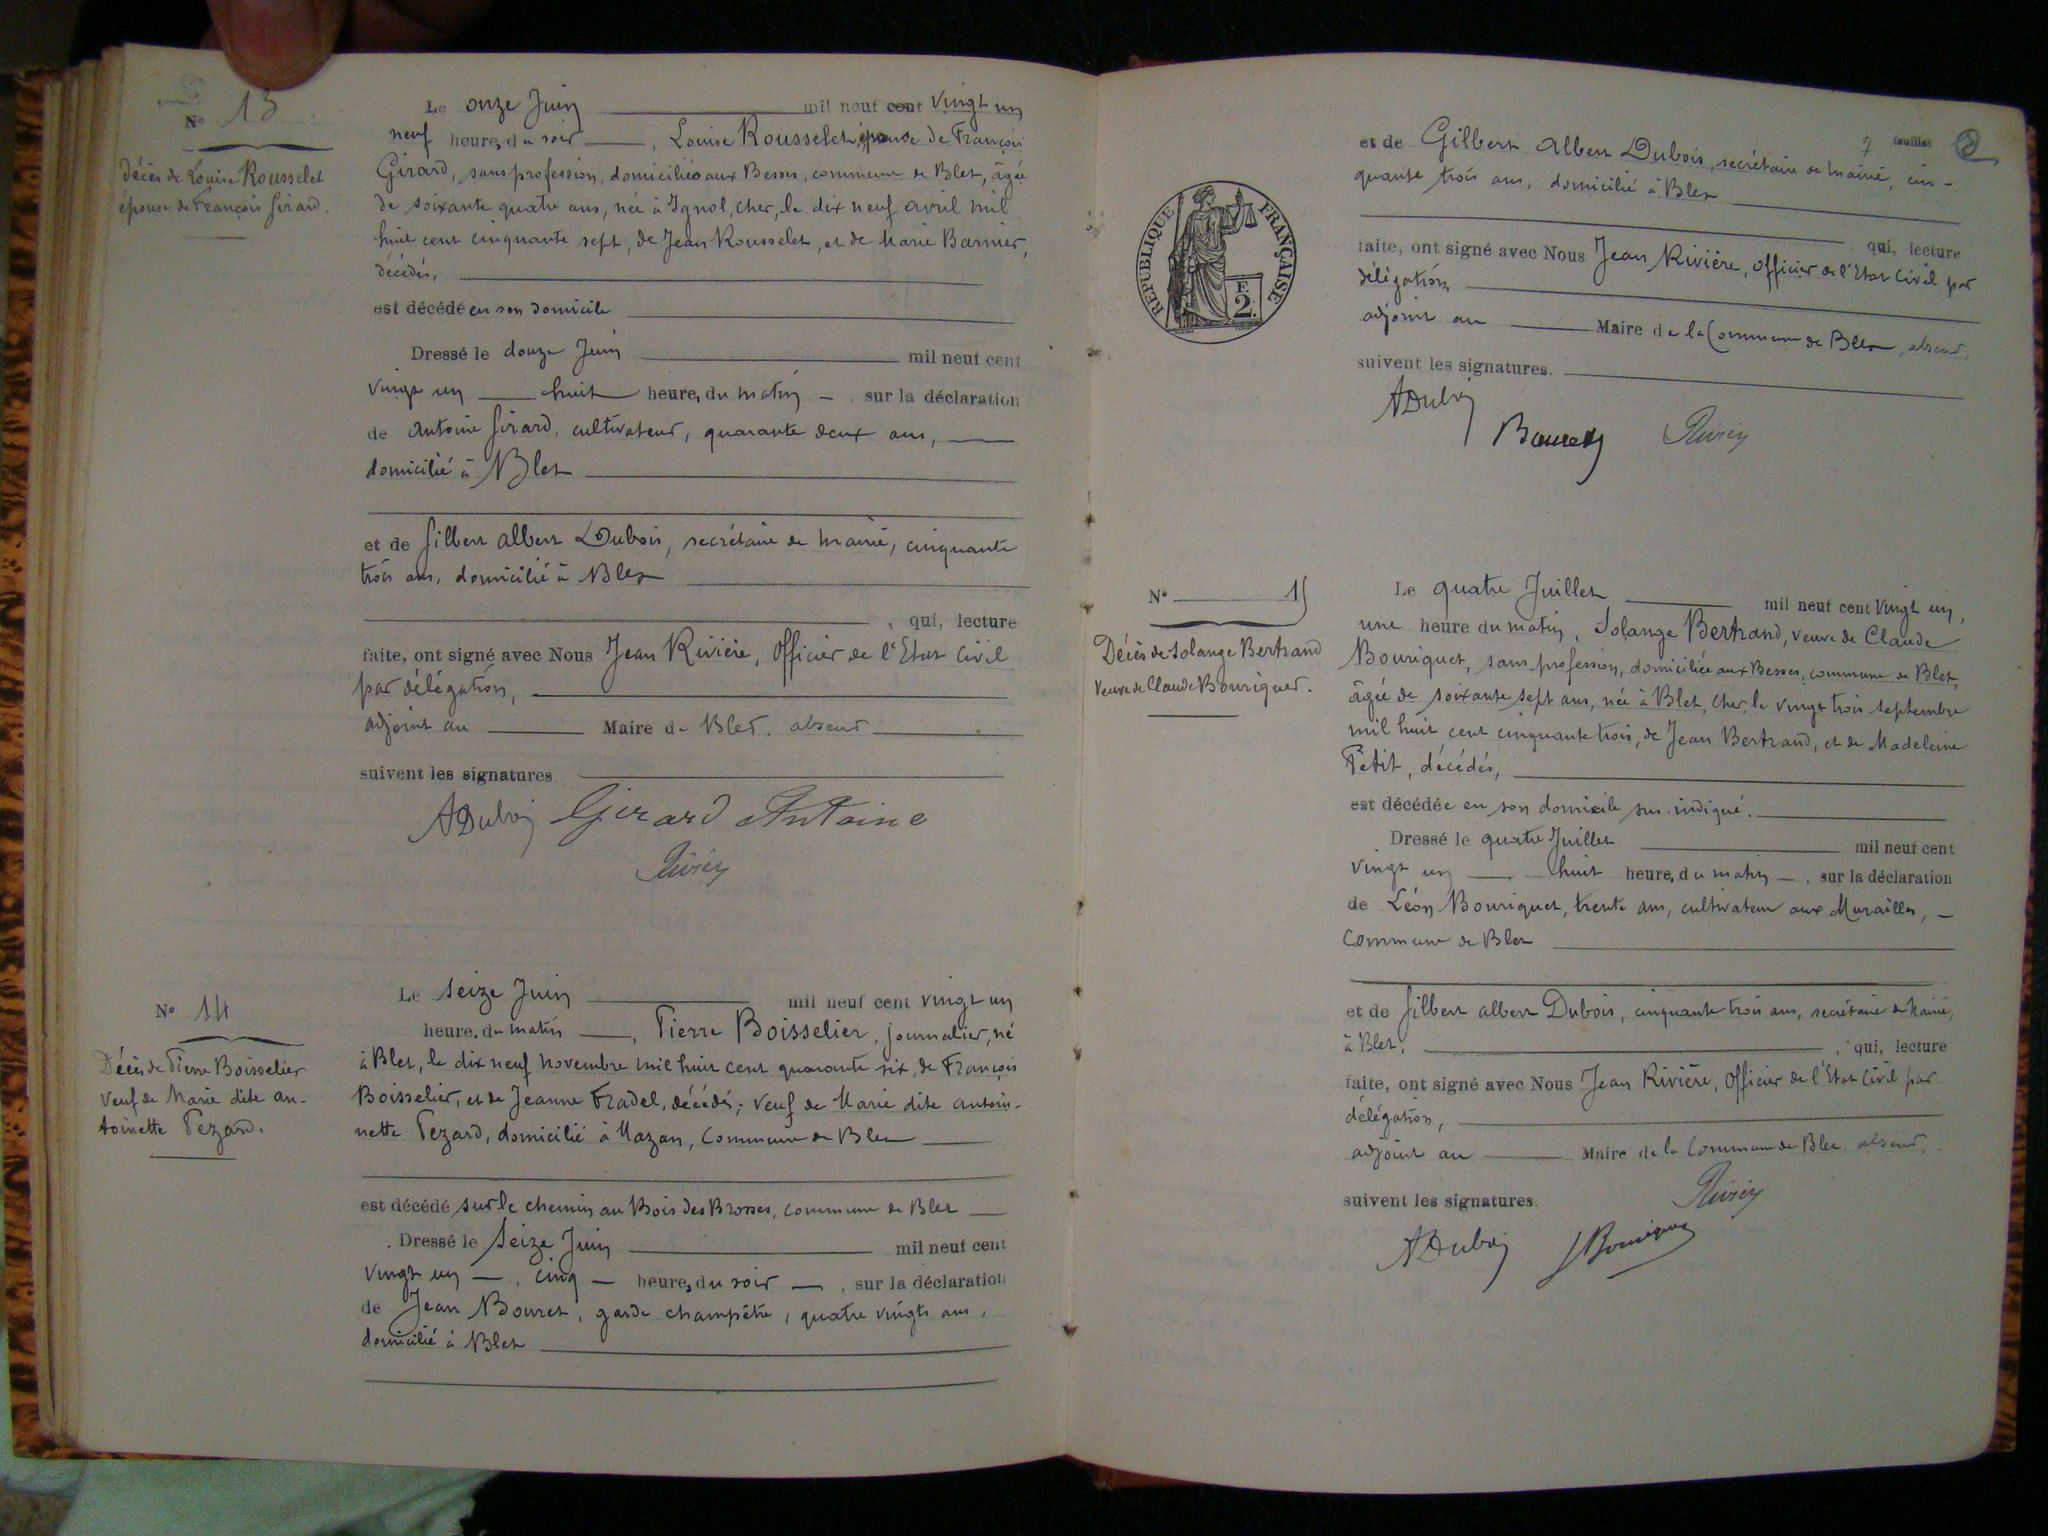 N° 13
Décès de Louise Rousselet
épouse de François Girard.
Le onze Juin mil neuf cent vingt un
neuf heures du soir, Louise Rousselet épouse de François
Girard, sans profession, domiciliée aux Besses, commune de Blet, âgée
de soixante quatre ans, née à Ignol, Cher, le dix neuf avril mil
huit cent cinquante sept, de Jean Rousselet, et de Marie Barnier,
décédés,
est décédé en son domicile
Dressé le douze Juin mil neuf cent
vingt un huit heures du matin, sur la déclaration
de Antoine Girard, cultivateur, quarante deux ans,
domicilié à Blet
et de Gilbert Albert Dubois, secrétaire de mairie, cinquante
trois ans, domicilié à Blet
, qui, lecture
faite, ont signé avec Nous Jean Rivière, Officier de l'Etat Civil
par délégation,
adjoint au Maire de Blet absent
suivent les signatures.
ADubois Girard Antoine
N° 14
Décès de Pierre Boisselier
veuf de Marie dite An-
toinette Pezard.
Le seize Juin mil neuf cent vingt un
heure, du matin, Pierre Boisselier, journalier, né
à Blet, le dix neuf novembre mil huit cent quarante six, de François
Boisselier, et de Jeanne Fradel, décédés; veuf de Marie dite Antoi-
nette Pezard, domicilié à Mazan, commune de Blet
est décédé sur le chemin au Bois des Brosses, commune de Blet
Dressé le seize Juin mil neuf cent
vingt un, cinq heures du soir, sur la déclaration
de Jean Bouret, garde champêtre, quatre vingts ans,
domicilié à Blet
7 feuillet
et de Gilbert Albert Dubois, secrétaire de mairie, cin-
quante trois ans, domicilié à Blet
RÉPUBLIQUE FRANÇAISE
F.
2.
qui, lecture
faite, ont signé avec Nous Jean Rivière, Officier de l'Etat Civil par
délégation,
adjoint au Maire de la Commune de Blet, absent,
suivent les signatures.
ADubois
Bouret
N° 15
Décès de Solange Bertrand
veuve de Claude Bouriquet.
Le quatre Juillet mil neuf cent vingt un,
une heure du matin, Solange Bertrand, veuve de Claude
Bouriquet, sans profession, domiciliée aux Besses, commune de Blet,
âgée de soixante sept ans, née à Blet, Cher, le vingt trois septembre
mil huit cent cinquante trois, de Jean Bertrand, et de Madeleine
Petit, décédés,
est décédée en son domicile sus-indiqué.
Dressé le quatre Juillet mil neuf cent
vingt un huit heures du matin, sur la déclaration
de Léon Bouriquet, trente ans, cultivateur aux Murailles,
Commune de Blet
et de Gilbert Albert Dubois, cinquante trois ans, secrétaire de Mairie,
à Blet, , qui, lecture
faite, ont signé avec Nous Jean Rivière, Officier de l'Etat Civil par
délégation,
adjoint au Maire de la Commune de Blet absent,
suivent les signatures.
ADubois Bouriquet